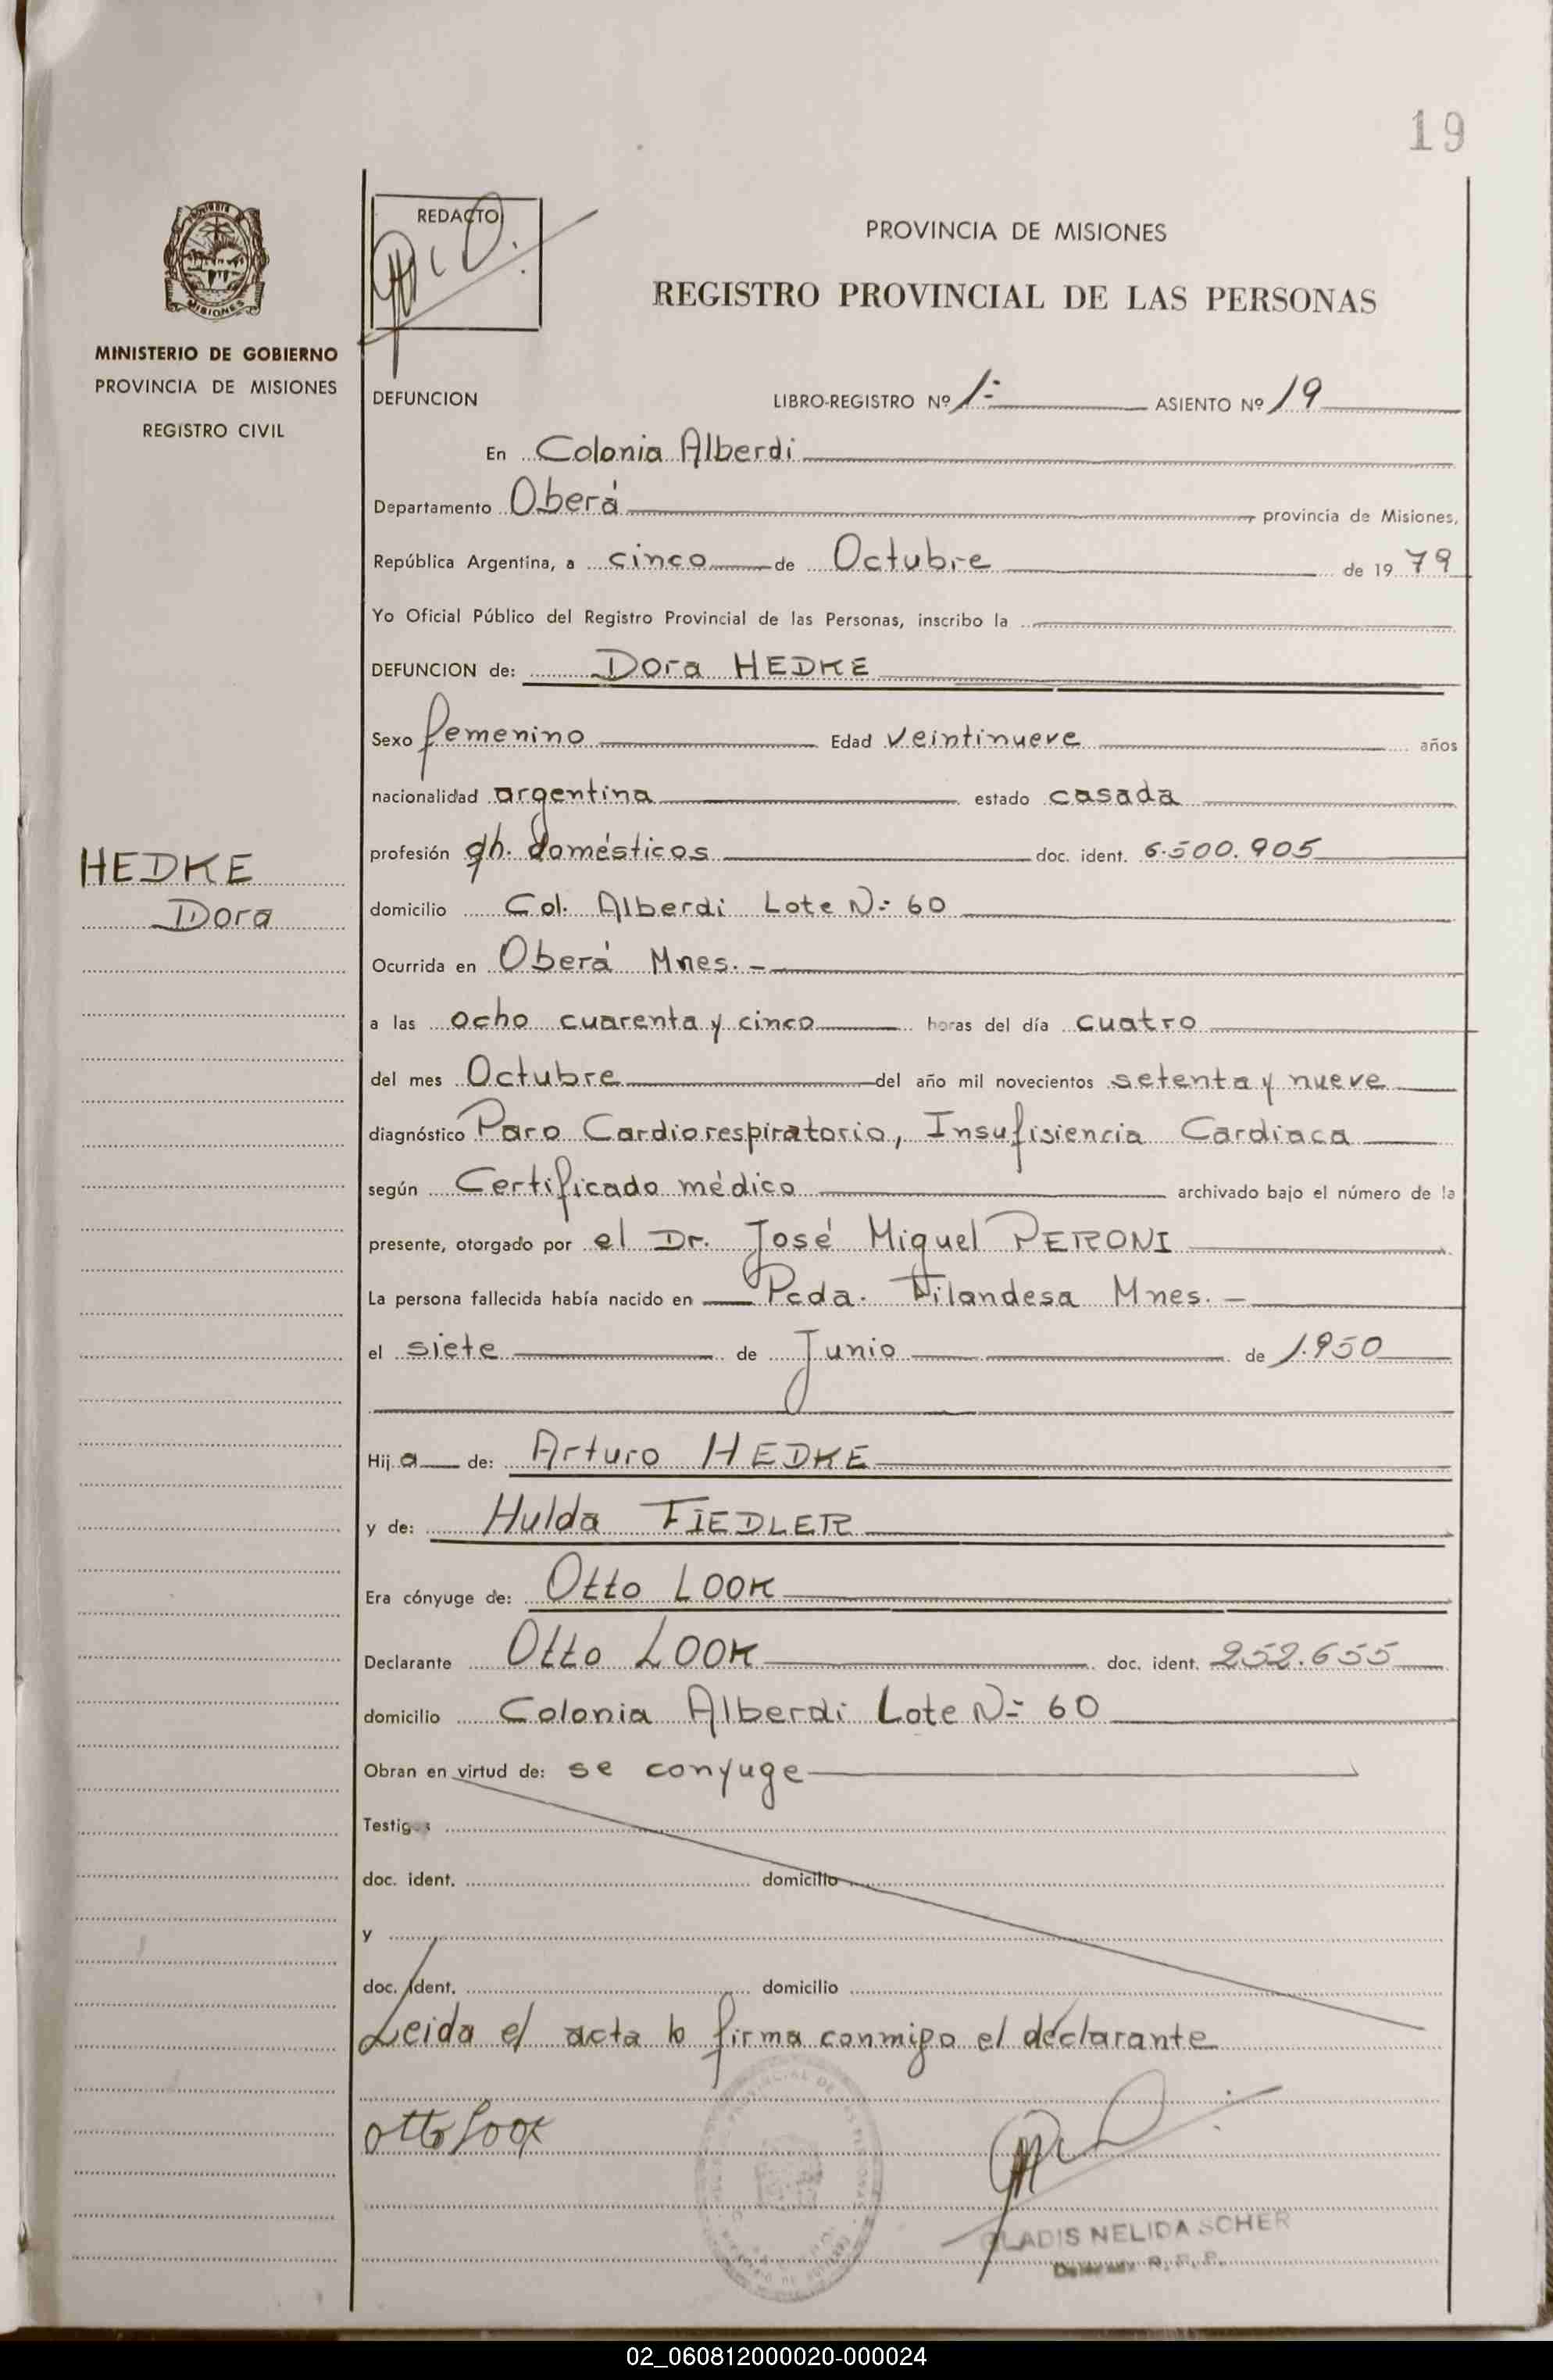 19
REDACTO
PROVINCIA DE MISIONES
REGISTRO PROVINCIAL DE LAS PERSONAS
MISIONES
MINISTERIO DE GOBIERNO
PROVINCIA DE MISIONES
REGISTRO CIVIL
HEDKE
Dora
DEFUNCION LIBRO-REGISTRO Nº 1:- ASIENTO Nº 19
En Colonia Alberdi
Departamento Oberá provincia de Misiones,
República Argentina, a cinco de Octubre de 19 79
Yo Oficial Público del Registro Provincial de las Personas, inscribo la
DEFUNCION de: Dora HEDKE
Sexo femenino Edad veintinueve años
nacionalidad argentina estado casada
profesión qh. domésticos doc. ident. 6.500.905
domicilio Col. Alberdi Lote N:- 60
Ocurrida en Oberá Mnes. -
a las ocho cuarenta y cinco horas del día cuatro
del mes Octubre del año mil novecientos setenta y nueve
diagnóstico Paro Cardiorespiratorio, Insufisiencia Cardiaca
según Certificado médico archivado bajo el número de la
presente, otorgado por el Dr. José Miguel PERONI
La persona fallecida había nacido en Pcda. Filandesa Mnes. -
el siete de Junio de 1.950
Hij a de: Arturo HEDKE
y de: Hulda FIEDLER
Era cónyuge de: Otto LOOK
Declarante Otto LOOK doc. ident. 252.655
domicilio Colonia Alberdi Lote N:- 60
Obran en virtud de: se conyuge
Testigos
doc. ident. domicilio
y
doc. ident. domicilio
Leida el acta lo firma conmigo el declarante
otto look
GLADIS NELIDA SCHER
R. P. P.
02_060812000020-000024